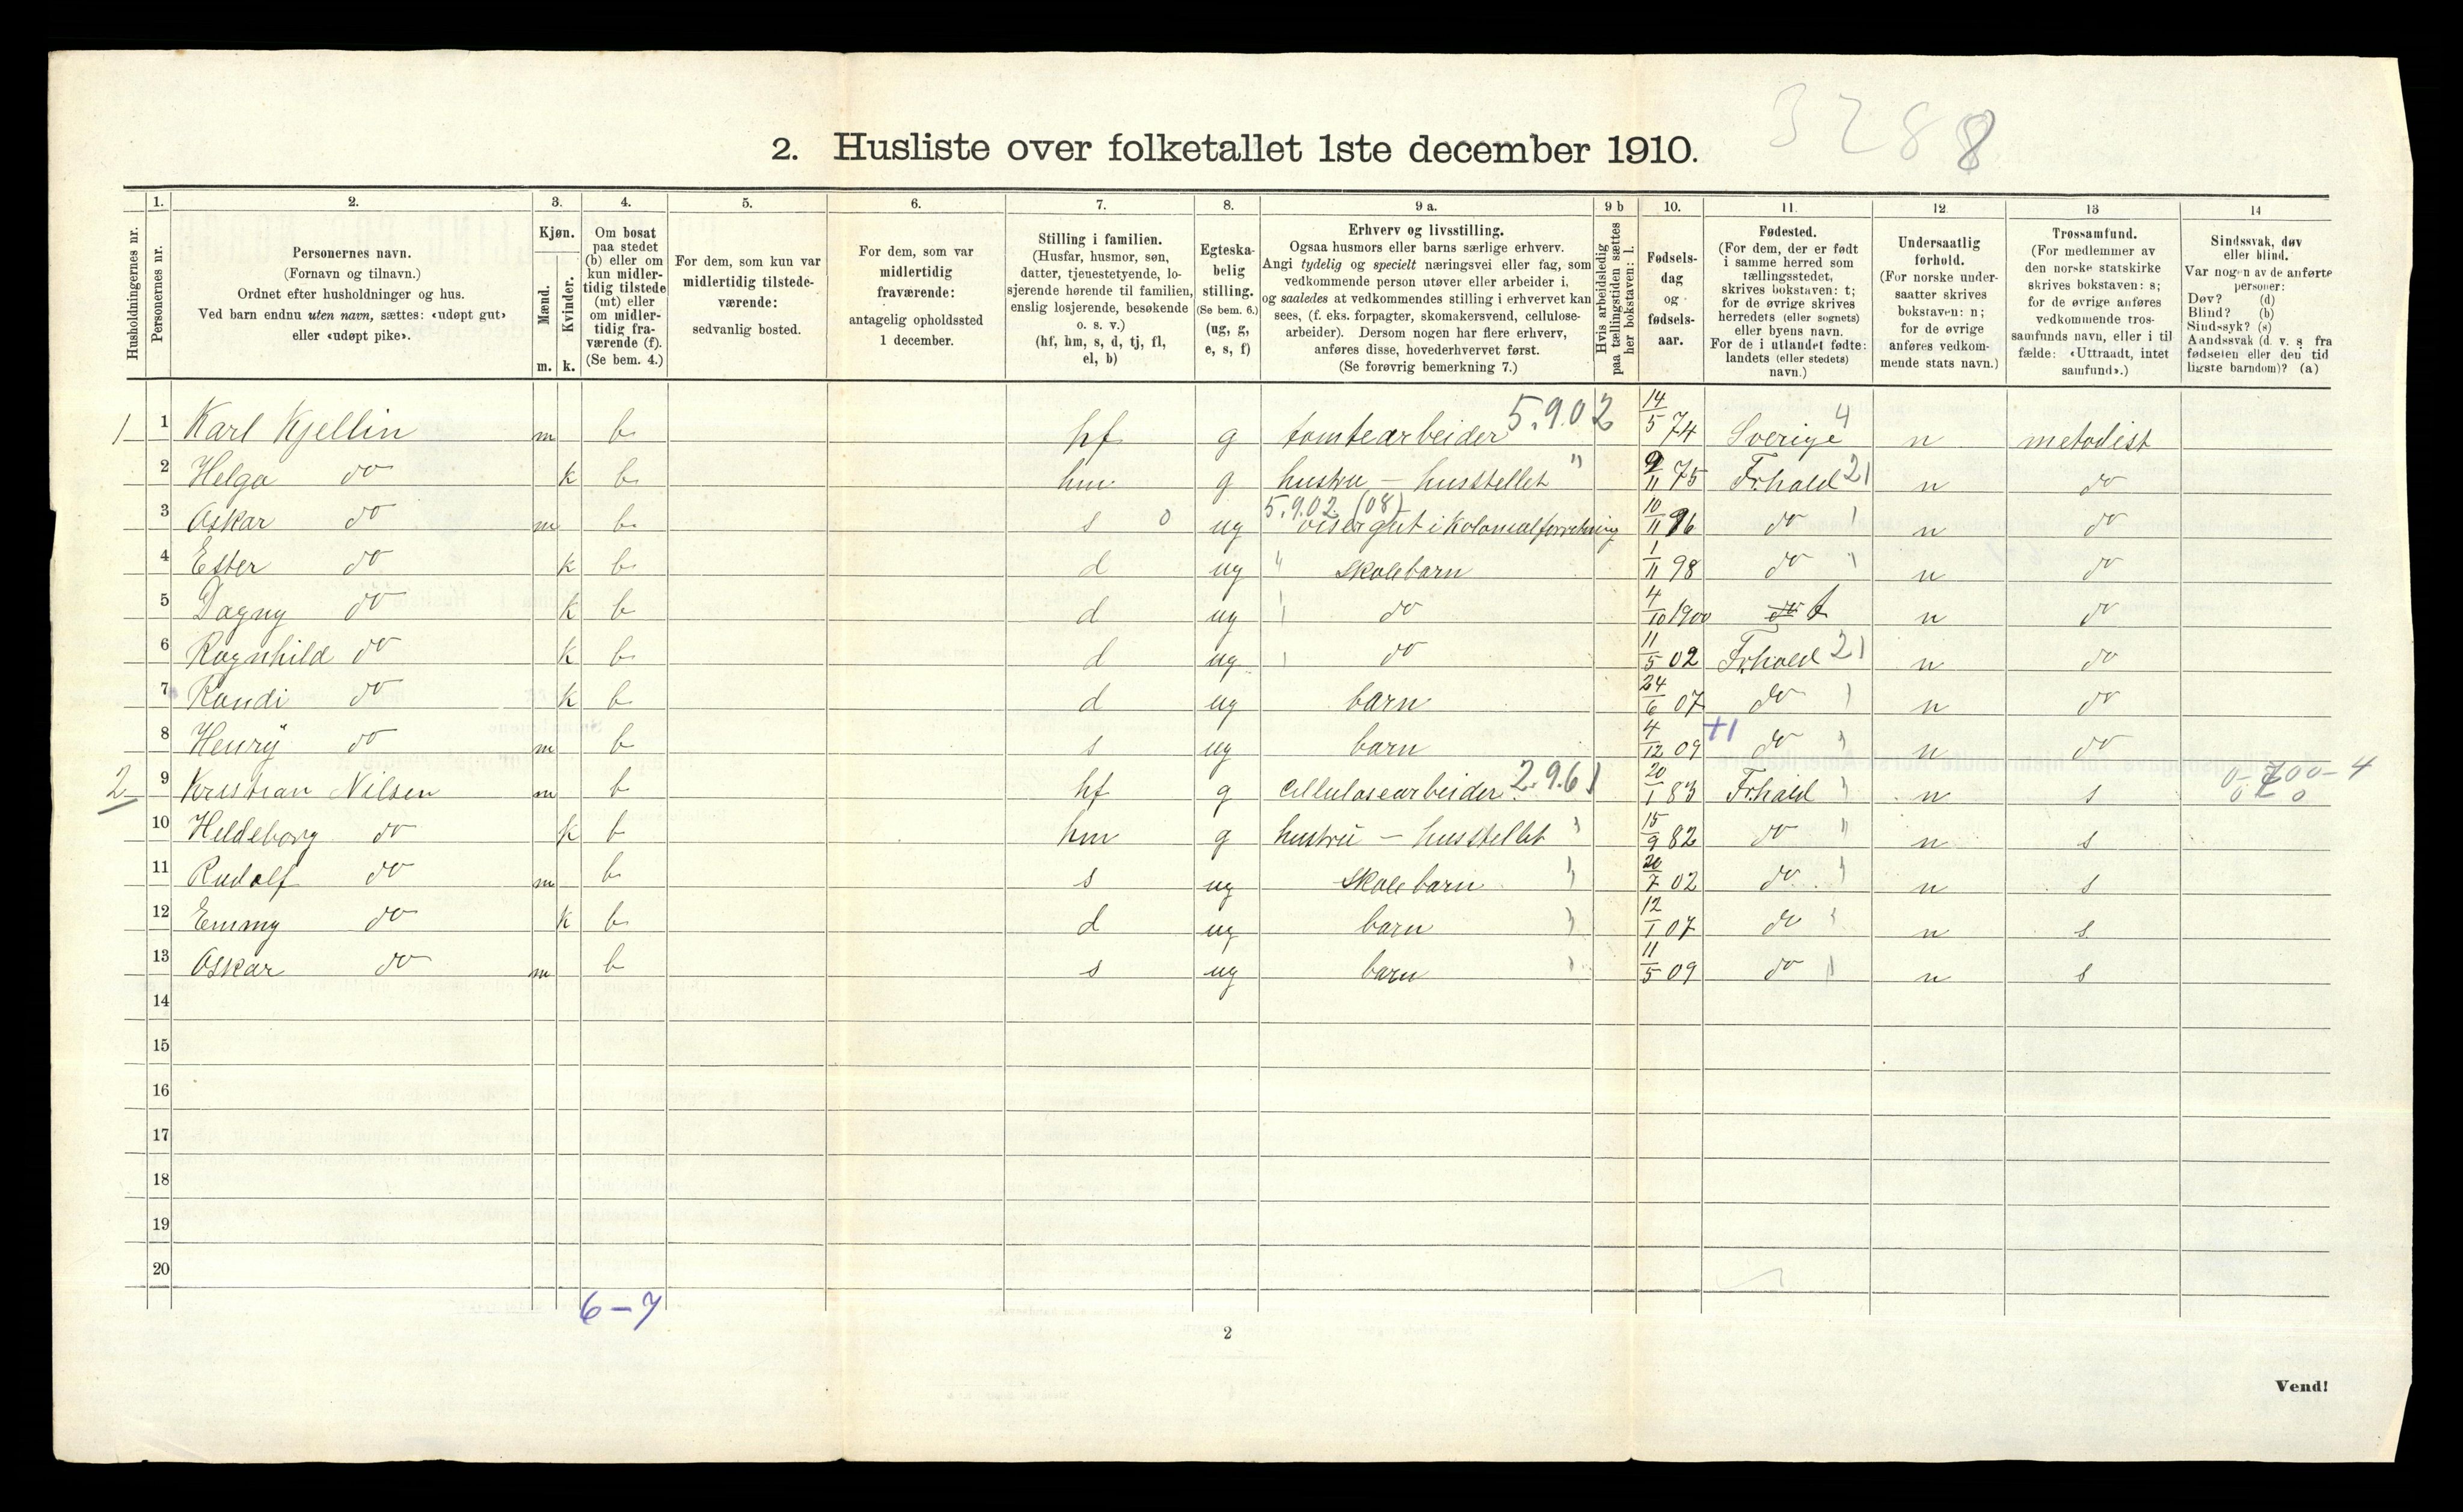 3288
2. Husliste over folketallet 1ste december 1910.
Husholdningernes nr.
1. Personernes nr.
2. Personernes navn.
(Fornavn og tilnavn.)
Ordnet efter husholdninger og hus.
Ved barn endnu uten navn, sættes: «udøpt gut»
eller «udøpt pike».
3. Kjøn.
Mænd. m.
Kvinder. k.
4. Om bosat
paa stedet
(b) eller om
kun midler-
tidig tilstede
(mt) eller
om midler-
tidig fra-
værende (f).
(Se bem. 4.)
5. For dem, som kun var
midlertidig tilstede-
værende:
sedvanlig bosted.
6. For dem, som var
midlertidig
fraværende:
antagelig opholdssted
1 december.
7. Stilling i familien.
(Husfar, husmor, søn,
datter, tjenestetyende, lo-
sjerende hørende til familien,
enslig losjerende, besøkende
o. s. v.)
(hf, hm, s, d, tj, fl,
el, b)
8. Egteska-
belig
stilling.
(Se bem. 6.)
(ug, g,
e, s, f)
9 a. Erhverv og livsstilling.
Ogsaa husmors eller barns særlige erhverv.
Angi tydelig og specielt næringsvei eller fag, som
vedkommende person utøver eller arbeider i,
og saaledes at vedkommendes stilling i erhvervet kan
sees, (f. eks. forpagter, skomakersvend, cellulose-
arbeider). Dersom nogen har flere erhverv,
anføres disse, hovederhvervet først.
(Se forøvrig bemerkning 7.)
9 b Hvis arbeidsledig
paa tællingstiden sættes
her bokstaven: l.
10. Fødsels-
dag
og
fødsels-
aar.
11. Fødested.
(For dem, der er født
i samme herred som
tællingsstedet,
skrives bokstaven: t;
for de øvrige skrives
herredets (eller sognets)
eller byens navn.
For de i utlandet fødte:
landets (eller stedets)
navn.)
12. Undersaatlig
forhold.
(For norske under-
saatter skrives
bokstaven: n;
for de øvrige
anføres vedkom-
mende stats navn.)
13 Trossamfund.
(For medlemmer av
den norske statskirke
skrives bokstaven: s;
for de øvrige anføres
vedkommende tros-
samfunds navn, eller i til
fælde: «Uttraadt, intet
samfund».)
14 Sindssvak, døv
eller blind.
Var nogen av de anførte
personer:
Døv? (d)
Blind? (b)
Sindssyk? (s)
Aandssvak (d. v. s. fra
fødselen eller den tid
ligste barndom)? (a)
1 1 Karl Kjellin m b hf g tomtearbeider 5.9.02 14/5 74 Sverige 4 n metodist
2 Helga do k b hm g hustru - husstellet " 9/11 75 Fr.hald 21 n do
3 Oskar do m b s 0 ug 5.9.02 (08) visergut i Kolonialforretning 10/11 96 do n do
4 Ester do k b d ug " Skolebarn 1/11 98 do " n do
5 Dagny do k b d ug do 4/10 1900 do t n do
6 Ragnhild do k b d ug do 11/5 02 Fr.hald 21 n do
7 Randi do k b d ug barn 24/6 07 do n do
8 Henry do m b s ug barn 4/12 09 +1 do n do
2 9 Kristian Nilsen m b hf g Cellulosearbeider 2.9.61 20/1 83 Fr.hald n s
10 Heldeborg do k b hm g hustru - husstellet 15/9 82 do " n s
11 Rudolf do m b s ug Skolebarn 20/7 02 do n s
12 Emmy do k b d ug barn 12/1 07 do n s
13 Oskar do m b s ug barn 11/5 09 do n s
14
15
16
17
18
19
20
6-7
2
Vend!